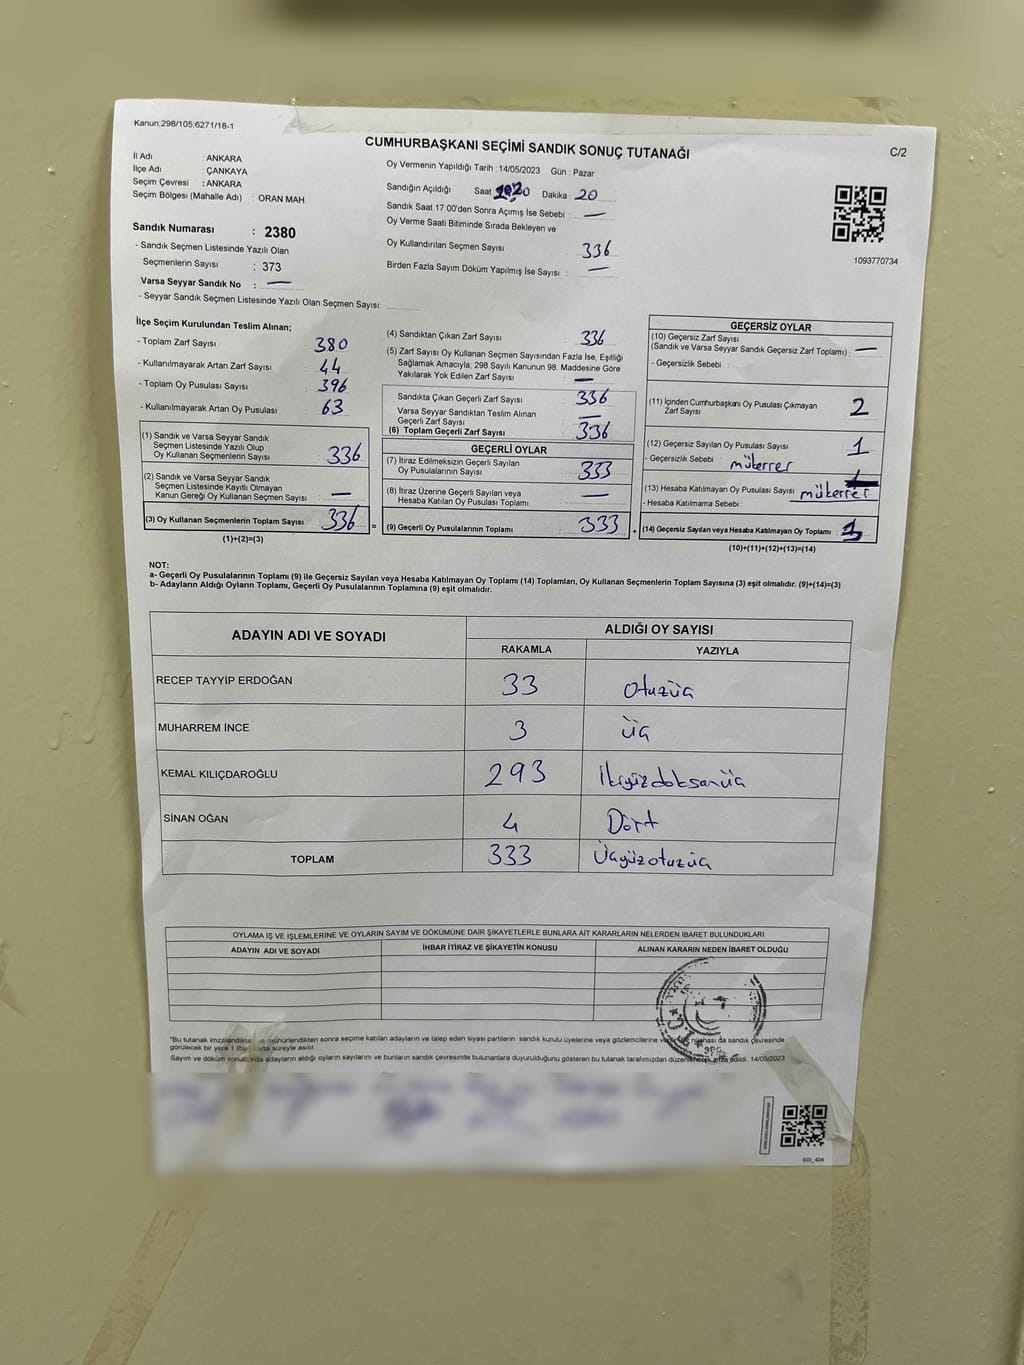 Kanun;298/105;6271/18-1
CUMHURBAŞKANI SEÇİMİ SANDIK SONUÇ TUTANAĞI
C/2
İl Adı : ANKARA
İlçe Adı : ÇANKAYA
Seçim Çevresi : ANKARA
Seçim Bölgesi (Mahalle Adı) : ORAN MAH.
Sandık Numarası : 2380
- Sandık Seçmen Listesinde Yazılı Olan
Seçmenlerin Sayısı : 373
Varsa Seyyar Sandık No : —
- Seyyar Sandık Seçmen Listesinde Yazılı Olan Seçmen Sayısı:
Oy Vermenin Yapıldığı Tarih : 14/05/2023 Gün : Pazar
Sandığın Açıldığı Saat Dakika : 20
Sandık Saat 17:00'den Sonra Açımış İse Sebebi : —
Oy Verme Saati Bitiminde Sırada Bekleyen ve
Oy Kullandırılan Seçmen Sayısı : 336
Birden Fazla Sayım Döküm Yapılmış İse Sayısı : —
1093770734
İlçe Seçim Kurulundan Teslim Alınan;
- Toplam Zarf Sayısı : 380
- Kullanılmayarak Artan Zarf Sayısı : 44
- Toplam Oy Pusulası Sayısı : 396
- Kullanılmayarak Artan Oy Pusulası : 63
(1) Sandık ve Varsa Seyyar Sandık
Seçmen Listesinde Yazılı Olup
Oy Kullanan Seçmenlerin Sayısı : 336
(2) Sandık ve Varsa Seyyar Sandık
Seçmen Listesinde Kayıtlı Olmayan
Kanun Gereği Oy Kullanan Seçmen Sayısı : —
(3) Oy Kullanan Seçmenlerin Toplam Sayısı : 336 =
(1)+(2)=(3)
(4) Sandıktan Çıkan Zarf Sayısı : 336
(5) Zarf Sayısı Oy Kullanan Seçmen Sayısından Fazla İse, Eşitliği
Sağlamak Amacıyla, 298 Sayılı Kanunun 98. Maddesine Göre
Yakılarak Yok Edilen Zarf Sayısı : —
Sandıkta Çıkan Geçerli Zarf Sayısı : 336
Varsa Seyyar Sandıktan Teslim Alınan
Geçerli Zarf Sayısı : —
(6) Toplam Geçerli Zarf Sayısı : 336
GEÇERLİ OYLAR
(7) İtiraz Edilmeksizin Geçerli Sayılan
Oy Pusulalarının Sayısı : 333
(8) İtiraz Üzerine Geçerli Sayılan veya
Hesaba Katılan Oy Pusulası Toplamı : —
(9) Geçerli Oy Pusulalarının Toplamı : 333 +
GEÇERSİZ OYLAR
(10) Geçersiz Zarf Sayısı
(Sandık ve Varsa Seyyar Sandık Geçersiz Zarf Toplamı) : —
- Geçersizlik Sebebi :
(11) İçinden Cumhurbaşkanı Oy Pusulası Çıkmayan
Zarf Sayısı : 2
(12) Geçersiz Sayılan Oy Pusulası Sayısı : 1
- Geçersizlik Sebebi : mükerrer
(13) Hesaba Katılmayan Oy Pusulası Sayısı : mükerrer
- Hesaba Katılmama Sebebi :
(14) Geçersiz Sayılan veya Hesaba Katılmayan Oy Toplamı : 3
(10)+(11)+(12)+(13)=(14)
NOT:
a- Geçerli Oy Pusulalarının Toplamı (9) ile Geçersiz Sayılan veya Hesaba Katılmayan Oy Toplamı (14) Toplamları, Oy Kullanan Seçmenlerin Toplam Sayısına (3) eşit olmalıdır. (9)+(14)=(3)
b- Adayların Aldığı Oyların Toplamı, Geçerli Oy Pusulalarının Toplamına (9) eşit olmalıdır.
ADAYIN ADI VE SOYADI ALDIĞI OY SAYISI
RAKAMLA YAZIYLA
RECEP TAYYİP ERDOĞAN 33 Otuzüç
MUHARREM İNCE 3 Üç
KEMAL KILIÇDAROĞLU 293 İkiyüzdoksanüç
SİNAN OĞAN 4 Dört
TOPLAM 333 Üçyüzotuzüç
OYLAMA İŞ VE İŞLEMLERİNE VE OYLARIN SAYIM VE DÖKÜMÜNE DAİR ŞİKAYETLERLE BUNLARA AİT KARARLARIN NELERDEN İBARET BULUNDUKLARI
ADAYIN ADI VE SOYADI İHBAR İTİRAZ VE ŞİKAYETİN KONUSU ALINAN KARARIN NEDEN İBARET OLDUĞU
"Bu tutanak imzalandıktan ve mühürlendikten sonra seçime katılan adayların ve talep eden siyasi partilerin sandık kurulu üyelerine veya gözlemcilerine nüshası da sandık çevresinde
görülecek bir yere 1 (bir) hafta süreyle asılır.
Sayım ve döküm sonucunda adayların aldığı oyların sayılarını ve bunların sandık çevresinde bulunanlara duyurulduğunu gösteren bu tutanak tarafımızdan düzenlenerek imza edildi. 14/05/2023